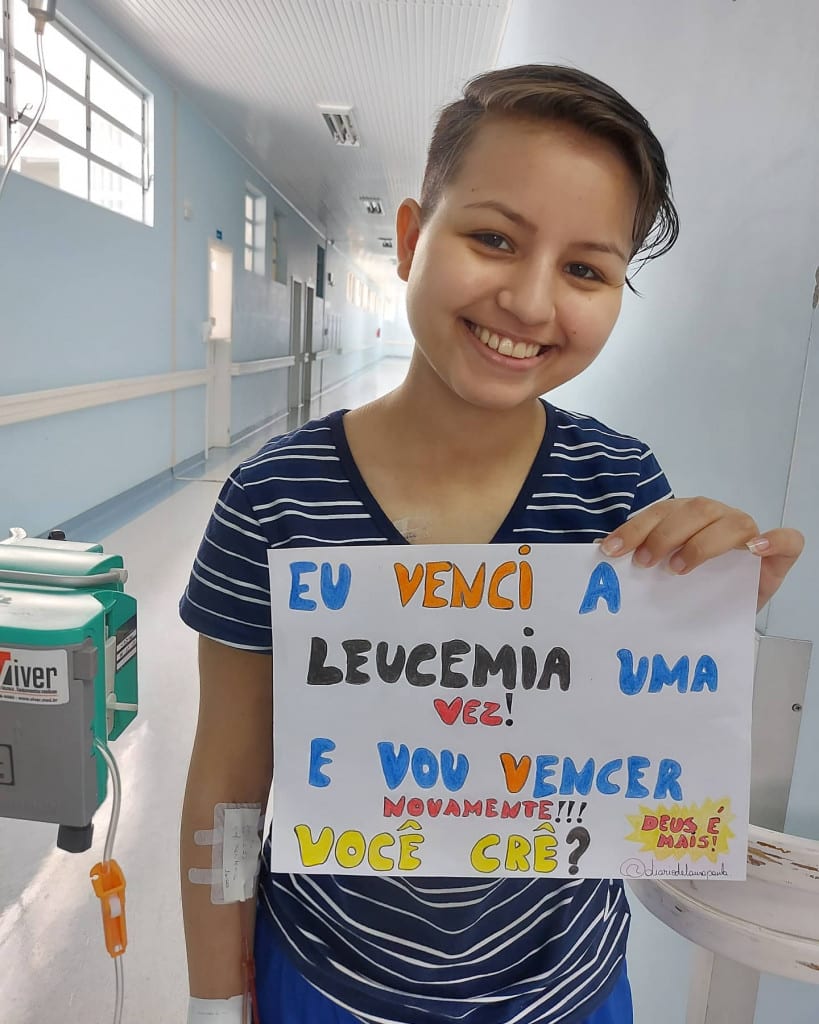 EU VENCI A
LEUCEMIA UMA
VEZ!
E VOU VENCER
NOVAMENTE!!!
VOCÊ CRÊ?
DEUS É
MAIS!
@diariodelauraparula
iver